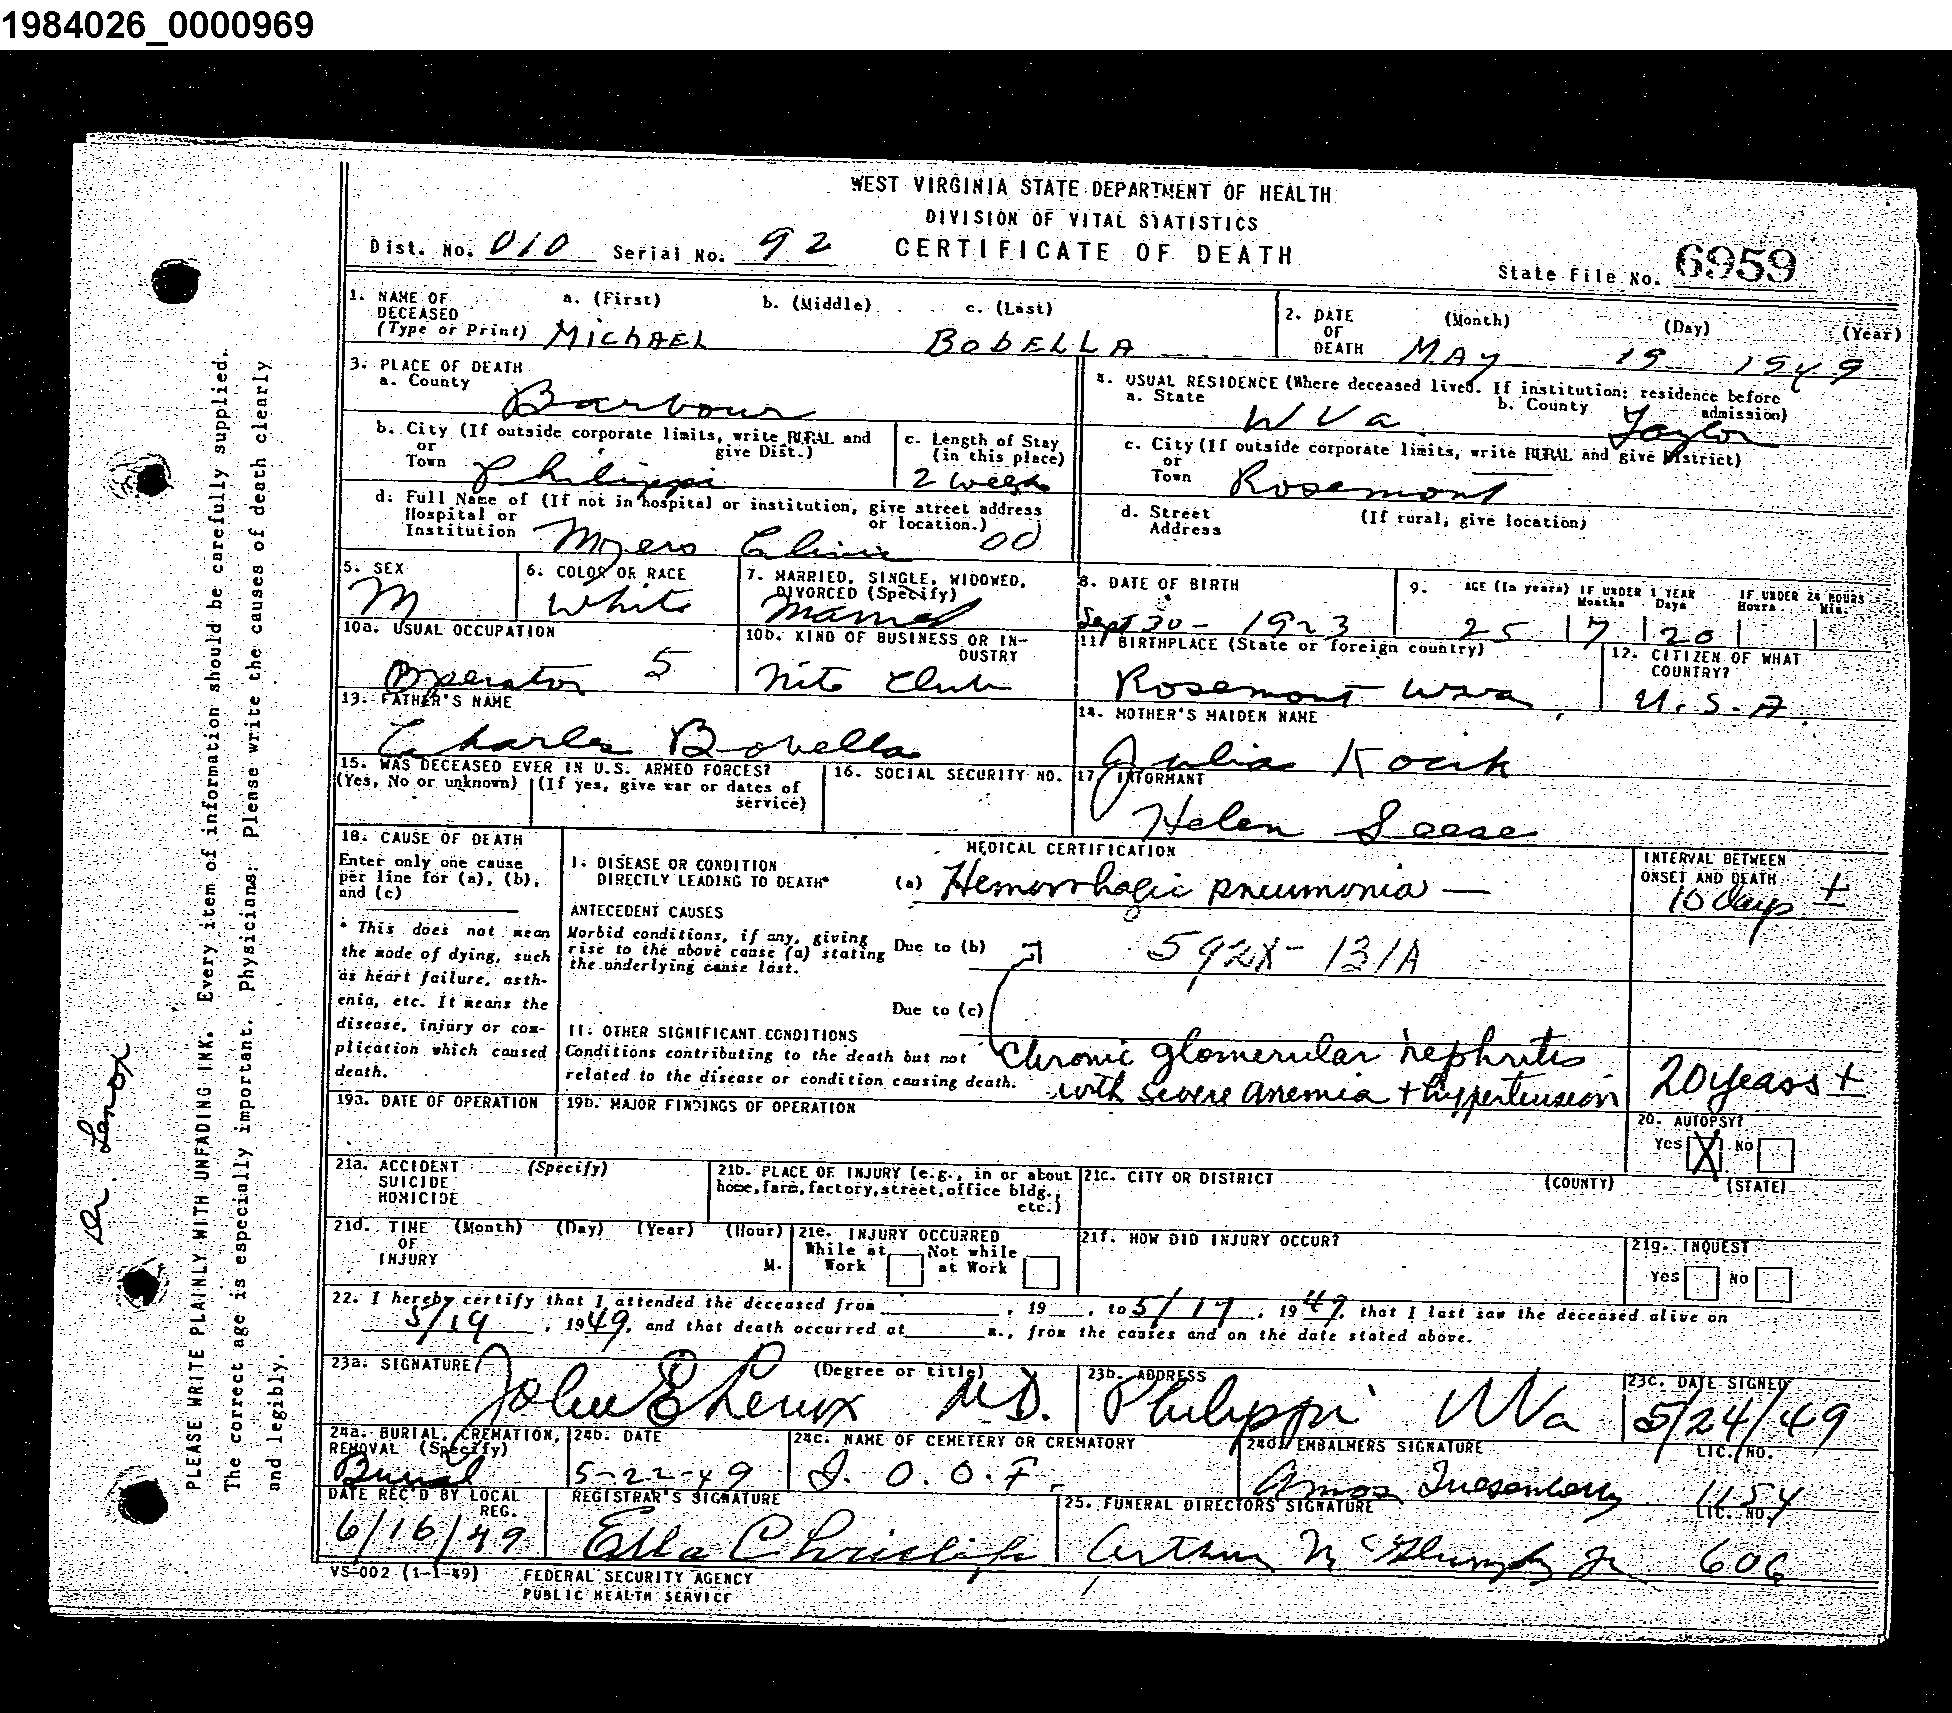 1984026_0000969
WEST VIRGINIA STATE DEPARTMENT OF HEALTH
DIVISION OF VITAL STATISTICS
Dist. No. 010 Serial No. 92 CERTIFICATE OF DEATH State File No. 6959
1. NAME OF DECEASED (Type or Print) a. (First) b. (Middle) c. (Last)
MICHAEL BOBELLA
2. DATE OF DEATH (Month) (Day) (Year)
MAY 19 1949
3. PLACE OF DEATH
a. County Barbour
4. USUAL RESIDENCE (Where deceased lived. If institution: residence before admission)
a. State W Va b. County Taylor
b. City (If outside corporate limits, write RURAL and give Dist.)
or Town Philippi
c. Length of Stay (in this place)
2 weeks
c. City (If outside corporate limits, write RURAL and give District)
or Town Rosemont
d. Full Name of (If not in hospital or institution, give street address or location.)
Hospital or Institution Myers Clinic 00
d. Street Address (If rural, give location)
5. SEX
M
6. COLOR OR RACE
White
7. MARRIED, SINGLE, WIDOWED, DIVORCED (Specify)
Married
8. DATE OF BIRTH
Sept 30 - 1923
9. AGE (In years) IF UNDER 1 YEAR Months Days IF UNDER 24 HOURS Hours Min.
25 7 20
10a. USUAL OCCUPATION
Operator 5
10b. KIND OF BUSINESS OR INDUSTRY
Nite Club
11. BIRTHPLACE (State or foreign country)
Rosemont W Va
12. CITIZEN OF WHAT COUNTRY?
U.S.A.
13. FATHER'S NAME
Charles Bobella
14. MOTHER'S MAIDEN NAME
Julia
15. WAS DECEASED EVER IN U.S. ARMED FORCES?
(Yes, No or unknown) (If yes, give war or dates of service)
16. SOCIAL SECURITY NO.
17. INFORMANT
Helen
18. CAUSE OF DEATH
Enter only one cause per line for (a), (b), and (c)
* This does not mean the mode of dying, such as heart failure, asthenia, etc. It means the disease, injury or complication which caused death.
MEDICAL CERTIFICATION
I. DISEASE OR CONDITION DIRECTLY LEADING TO DEATH*
(a) Hemorrhagic pneumonia —
INTERVAL BETWEEN ONSET AND DEATH
10 days ±
ANTECEDENT CAUSES
Morbid conditions, if any, giving rise to the above cause (a) stating the underlying cause last.
Due to (b) 592X - 131A
Due to (c)
II. OTHER SIGNIFICANT CONDITIONS
Conditions contributing to the death but not related to the disease or condition causing death.
Chronic glomerular nephritis
with severe anemia + hypertension
20 years ±
19a. DATE OF OPERATION
19b. MAJOR FINDINGS OF OPERATION
20. AUTOPSY?
Yes X No
21a. ACCIDENT SUICIDE HOMICIDE (Specify)
21b. PLACE OF INJURY (e.g., in or about home, farm, factory, street, office bldg., etc.)
21c. CITY OR DISTRICT (COUNTY) (STATE)
21d. TIME OF INJURY (Month) (Day) (Year) (Hour) M.
21e. INJURY OCCURRED
While at Work Not while at Work
21f. HOW DID INJURY OCCUR?
21g. INQUEST
Yes No
22. I hereby certify that I attended the deceased from , 19 , to 5/19 , 1949, that I last saw the deceased alive on
5/19 , 1949, and that death occurred at m., from the causes and on the date stated above.
23a. SIGNATURE (Degree or title)
John E Lenox MD.
23b. ADDRESS
Philippi W Va
23c. DATE SIGNED
5/24/49
24a. BURIAL, CREMATION, REMOVAL (Specify)
Burial
24b. DATE
5-22-49
24c. NAME OF CEMETERY OR CREMATORY
I.O.O.F.
24d. EMBALMERS SIGNATURE LIC. NO.
Amos Quesenberry 1154
DATE REC'D BY LOCAL REG.
6/16/49
REGISTRAR'S SIGNATURE
Ella
25. FUNERAL DIRECTORS SIGNATURE LIC. NO.
Arthur Jr 606
VS-002 (1-1-49) FEDERAL SECURITY AGENCY
PUBLIC HEALTH SERVICE
PLEASE WRITE PLAINLY WITH UNFADING INK. Every item of information should be carefully supplied.
The correct age is especially important. Physicians: Please write the causes of death clearly
and legibly.
Dr. Lenox